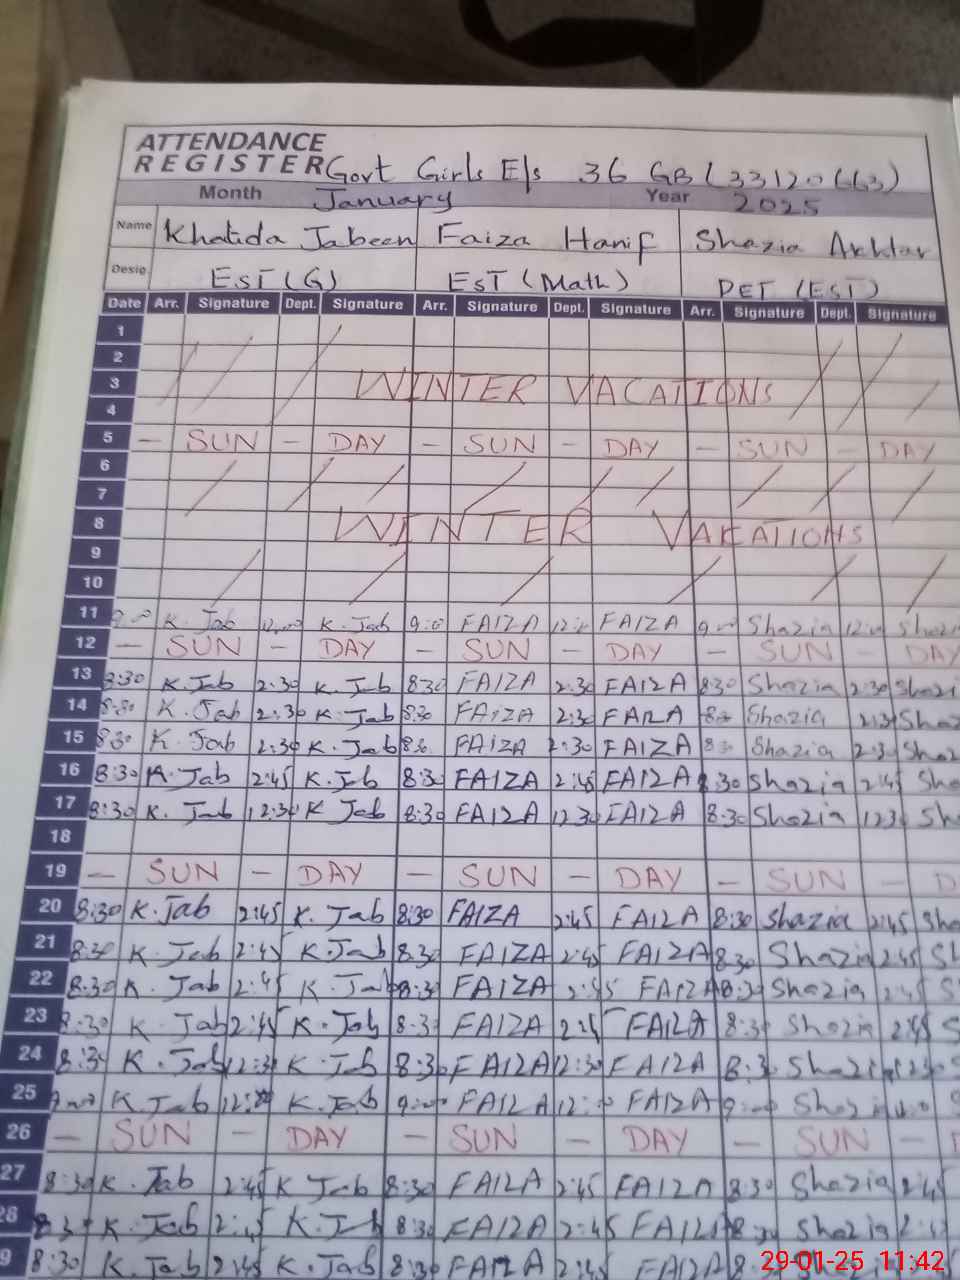 ATTENDANCE
REGISTER Govt Girls E/s 36 GB (33120663)
Month January Year 2025
Name Khalida Jabeen Faiza Hanif Shazia Akhtar
Desig. EST (G) EST (Math) PET (EST)
Date Arr. Signature Dept. Signature Arr. Signature Dept. Signature Arr. Signature Dept. Signature
1
2
3 WINTER VACATIONS
4
5 — SUN — DAY — SUN — DAY — SUN — DAY
6
7
8 WINTER VACATIONS
9
10
11 K. Jab K. Jab 9:00 FAIZA FAIZA Shazia
12 — SUN — DAY — SUN — DAY — SUN — DAY
13 8:30 K. Jab 2:30 K. Jab 8:30 FAIZA 2:30 FAIZA 8:30 Shazia 2:30 Shazi
14 8:30 K. Jab 2:30 K. Jab 8:30 FAIZA 2:30 FAIZA Shazia 2:30 Shaz
15 8:30 K. Jab 2:30 K. Jab FAIZA 2:30 FAIZA Shazia 2:30 Shaz
16 8:30 K. Jab 2:45 K. Jab 8:30 FAIZA 2:45 FAIZA 8:30 Shazia 2:45 Sha
17 8:30 K. Jab 12:30 K. Jab 8:30 FAIZA 12:30 FAIZA 8:30 Shazia 12:30 Sh
18
19 — SUN — DAY — SUN — DAY — SUN — D
20 8:30 K. Jab 2:45 K. Jab 8:30 FAIZA 2:45 FAIZA 8:30 Shazia 2:45 Sha
21 8:30 K. Jab 2:45 K. Jab 8:30 FAIZA 2:45 FAIZA 8:30 Shazia 2:45 Sh
22 8:30 K. Jab 2:45 K. Jab 8:30 FAIZA FAIZA 8:30 Shazia 2:45 S
23 8:30 K. Jab 2:45 K. Jab 8:30 FAIZA 2:45 FAIZA 8:30 Shazia 2:45 S
24 8:30 K. Jab 12:30 K. Jab 8:30 FAIZA 12:30 FAIZA 8:30 Shazia 12:30 S
25 K. Jab K. Jab 9:00 FAIZA FAIZA 9:00 Shazia
26 — SUN — DAY — SUN — DAY — SUN — D
27 8:30 K. Jab 2:45 K. Jab 8:30 FAIZA 2:45 FAIZA 8:30 Shazia 2:45
28 8:30 K. Jab 2:45 K. Jab 8:30 FAIZA 2:45 FAIZA 8:30 Shazia
9 8:30 K. Jab 2:45 K. Jab 8:30 FAIZA 2:45 FAIZA
29-01-25 11:42